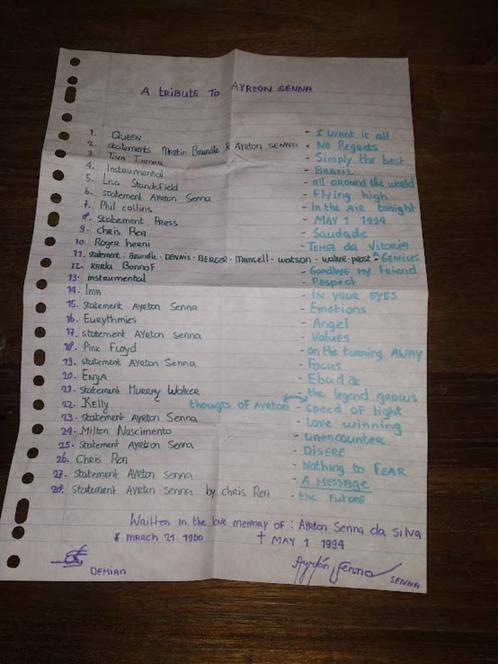 A tribute to AYRTON SENNA
1. Queen - I want is all
2. statements Martin Brundle & Ayrton SENNA - No Regrets
3. Tina Turner - Simply the best
4. Instrumental - BRAZIL
5. Lisa Standsfield - all around the world
6. statement Ayrton Senna - Flying high
7. Phil collins - In the AIR tonight
8. Statement Press - MAY 1 1994
9. Chris Rea - Saudade
10. Roger henri - Tema da Vitoria
11. statement - Brundle - DENNIS - BERGER - Mancell - watson - walker - prost - GENIUS
12. Karla Bonnof - Goodbye my Friend
13. instrumental - Respect
14. Inn - IN YOUR EYES
15. Statement Ayrton Senna - Emotions
16. Eurythmies - Angel
17. statement AYRton Senna - Values
18. Pink Floyd - on the turning AWAY
19. statement Ayrton Senna - Focus
20. Enya - Ebudæ
21. statement Murray Walker - the legend grows
22. Kelly thougts of Ayrton - speed of light
23. statement Ayrton Senna - Love winning
24. Milton Nascimento - unencounter
25. Statement Ayrton Senna - DISERE
26. Chris Rea - Nothing to FEAR
27. Statement Ayrton Senna - A MESSAGE
28. Statement Ayrton Senna by Chris Rea - the Future
Written in the love memory of : Ayrton Senna da Silva
* MARCH 21 1960 † MAY 1 1994
DEMIAN
Ayrton Senna SENNA